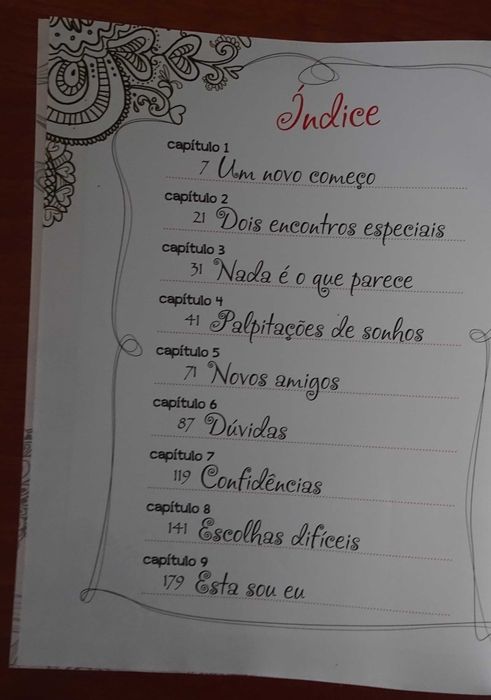 Índice
capítulo 1
7 Um novo começo
capítulo 2
21 Dois encontros especiais
capítulo 3
31 Nada é o que parece
capítulo 4
41 Palpitações de sonhos
capítulo 5
71 Novos amigos
capítulo 6
87 Dúvidas
capítulo 7
119 Confidências
capítulo 8
141 Escolhas difíceis
capítulo 9
179 Esta sou eu